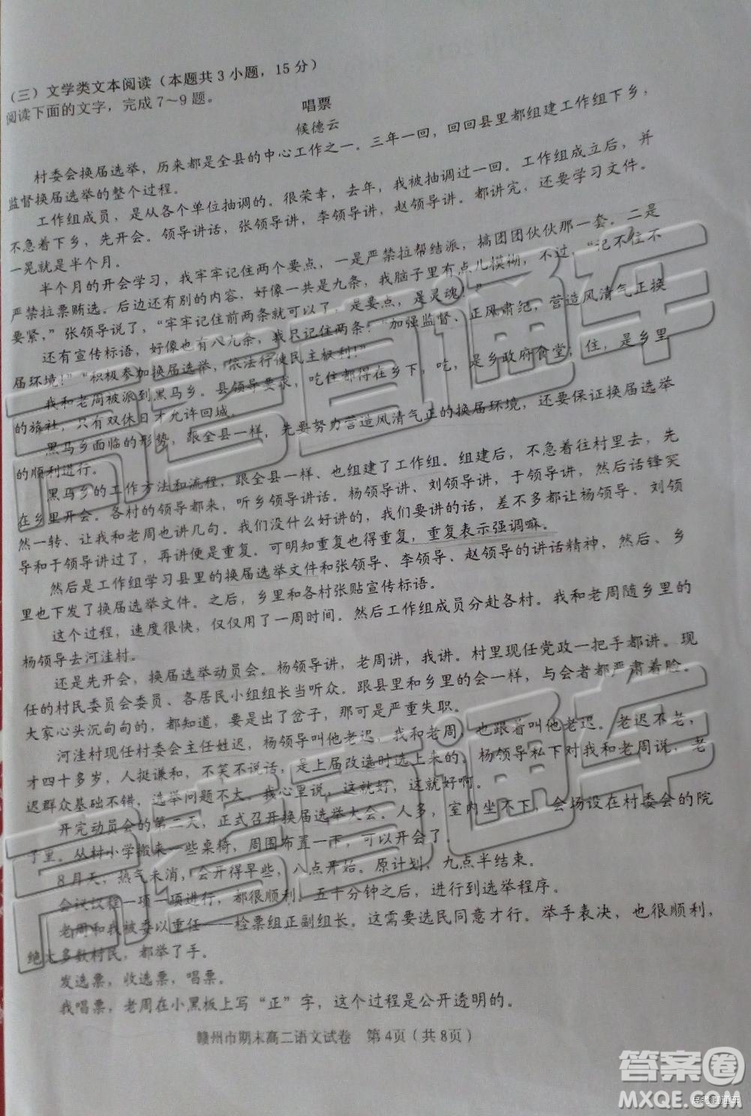 （三）文学类文本阅读（本题共3小题，15分）
阅读下面的文字，完成7～9题。
唱票
侯德云
村委会换届选举，历来都是全县的中心工作之一。三年一回，回回县里都组建工作组下乡，
监督换届选举的整个过程。
工作组成员，是从各个单位抽调的。很荣幸，去年，我被抽调过一回。工作组成立后，并
不急着下乡，先开会。领导讲话，张领导讲，李领导讲，赵领导讲。都讲完，还要学习文件。
一晃就是半个月。
半个月的开会学习，我牢牢记住两个要点，一是严禁拉帮结派，搞团团伙伙那一套。二是
严禁拉票贿选。后边还有别的内容，好像一共是九条，我脑子里有点儿模糊，不过，“记不住不
要紧，”张领导说了，“牢牢记住前两条就可以了，是要点，是灵魂。”
还有宣传标语，好像也有八九条，我只记住两条：“加强监督、正风肃纪，营造风清气正换
届环境！”“积极参加换届选举，依法行使民主权利！”
我和老周被派到黑马乡。县领导要求，吃住都得在乡下，吃，是乡政府食堂；住，是乡里
的旅社，只有双休日才允许回城。
黑马乡面临的形势，跟全县一样，先要努力营造风清气正的换届环境，还要保证换届选举
的顺利进行。
黑马乡的工作方法和流程，跟全县一样、也组建了工作组。组建后，不急着往村里去，先
在乡里开会。各村的领导都来，听乡领导讲话。杨领导讲、刘领导讲，于领导讲，然后话锋突
然一转、让我和老周也讲几句。我们没什么好讲的，我们要讲的话，差不多都让杨领导、刘领
导和于领导讲过了，再讲便是重复。可明知重复也得重复，重复表示强调嘛。
然后是工作组学习县里的换届选举文件和张领导、李领导、赵领导的讲话精神，然后、乡
里也下发了换届选举文件。之后，乡里和各村张贴宣传标语。
这个过程，速度很快，仅仅用了一周时间。然后工作组成员分赴各村。我和老周随乡里的
杨领导去河洼村。
还是先开会，换届选举动员会。杨领导讲，老周讲，我讲。村里现任党政一把手都讲。现
任的村民委员会委员、各居民小组组长当听众。跟县里和乡里的会一样，与会者都严肃着脸。
大家心头沉甸甸的，都知道，要是出了岔子，那可是严重失职。
河洼村现任村委会主任姓迟，杨领导叫他老迟，我和老周，也跟着叫他老迟。老迟不老，
才四十多岁，人挺谦和，不笑不说话，是上届改选时选上来的，杨领导私下对我和老周说，老
迟群众基础不错，选举问题不大。我心里说，这就好，这就好啊。
开完动员会的第二天，正式召开换届选举大会。人多，室内坐不下，会场设在村委会的院
子里。从村小学搬来一些桌椅，周围布置一下，可以开会了。
8月天，热气未消，会开得早些，八点开始。原计划，九点半结束。
会议议程一项一项进行，都很顺利，五十分钟之后，进行到选举程序。
老周和我被委以重任——检票组正副组长。这需要选民同意才行。举手表决，也很顺利，
绝大多数村民，都举了手。
发选票，收选票，唱票。
我唱票，老周在小黑板上写“正”字，这个过程是公开透明的。
赣州市期末高二语文试卷 第4页（共8页）
高考直通车
高考直通车
答案圈
MXQE.COM